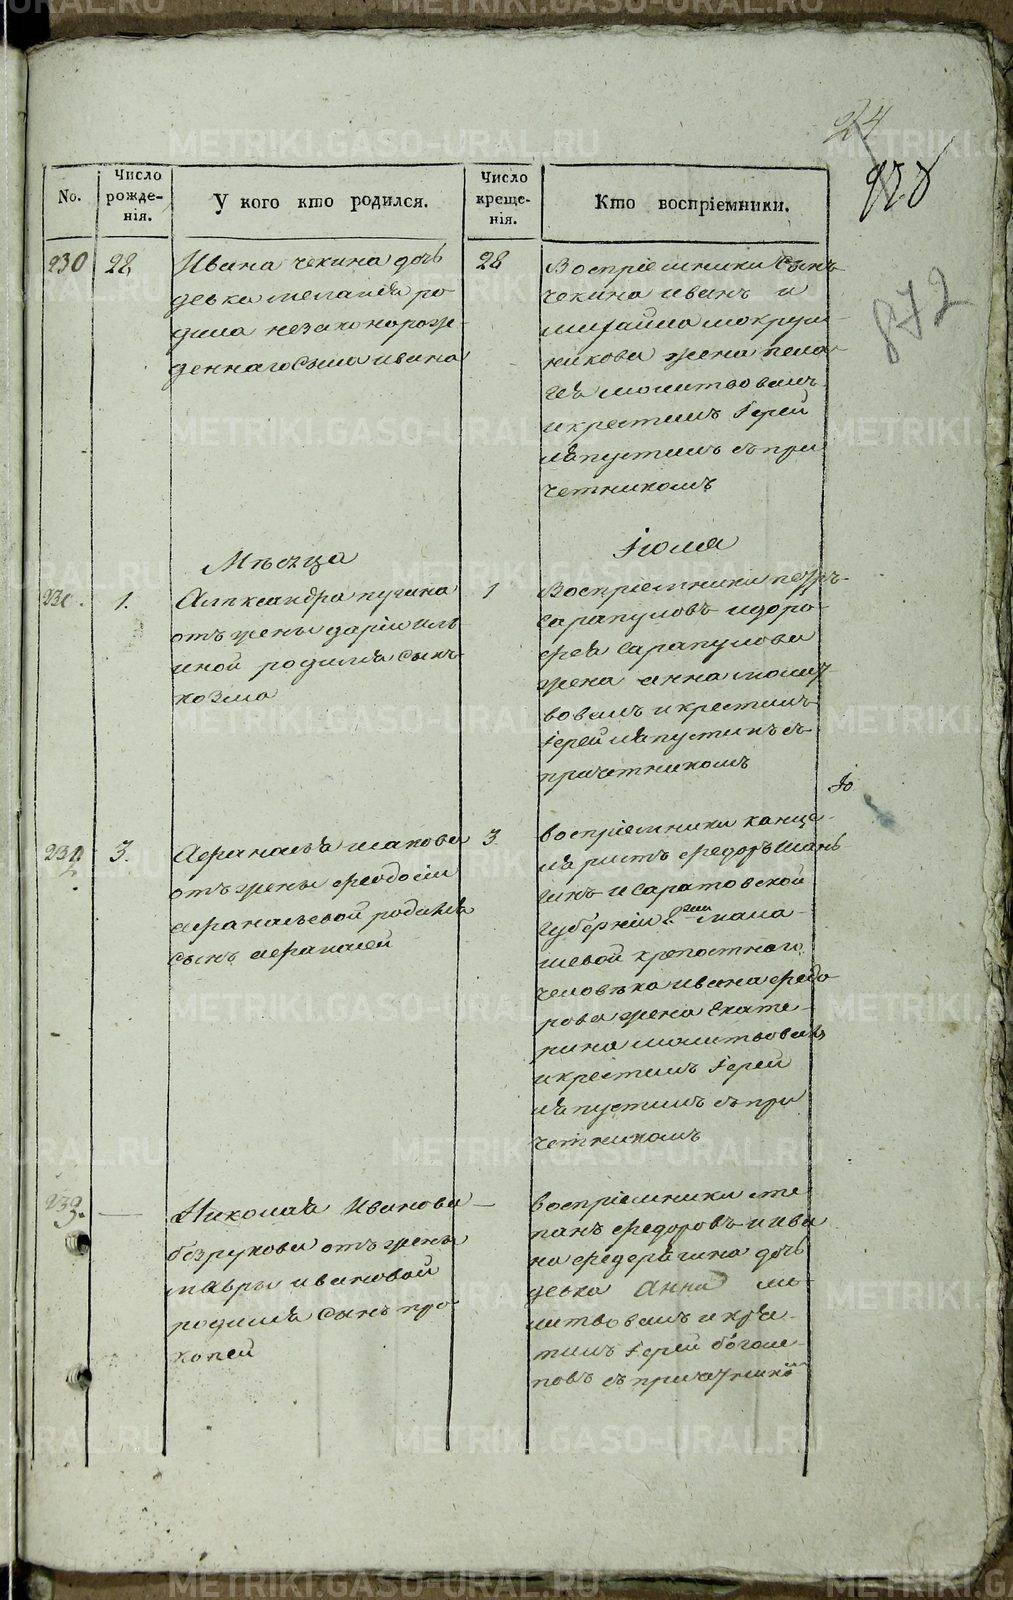 24
928
872
No.
Число рожде-нія.
У кого кто родился.
Число креще-нія.
Кто воспріемники.
230
28
Ивана чекина дочь
девка меланія ро
дила незаконорож
деннаго Сына ивана
28
Воспріемники Сынъ
чекина иванъ и
михайла мокруш
никова жена пела
гея молитвовалъ
и крестилъ Іерей
ляпустинъ съ при
четникомъ
Мѣсяца
Іюля
231.
1.
Александра пугина
отъ жены даріи иль
иной родился сынъ
козма
1
Воспріемники петръ
Сарапуловъ и доро
фея Сарапулова
жена анна молит
вовалъ и крестилъ
Іерей ляпустинъ съ
причетникомъ
Іо
232
3.
Афанасья
отъ жены феодосіи
афанасьевой родился
сынъ афанасей
3
воспріемники канце-
ляристъ федоръ шань
гинъ и Саратовской
губерніи
шевой крепостнаго
человѣка ивана федо
рова жена Екате-
рина молитвовалъ
и крестилъ Іерей
ляпустинъ съ при
четникомъ
233.
Николая Иванова
безрукова отъ жены
мавры ивановой
родился Сынъ про
копей
воспріемники сте
панъ федоровъ и ива
на федерягина дочь
девка Анна мо-
литвовалъ и крес-
тилъ Іерей богом-
повъ съ причетнико